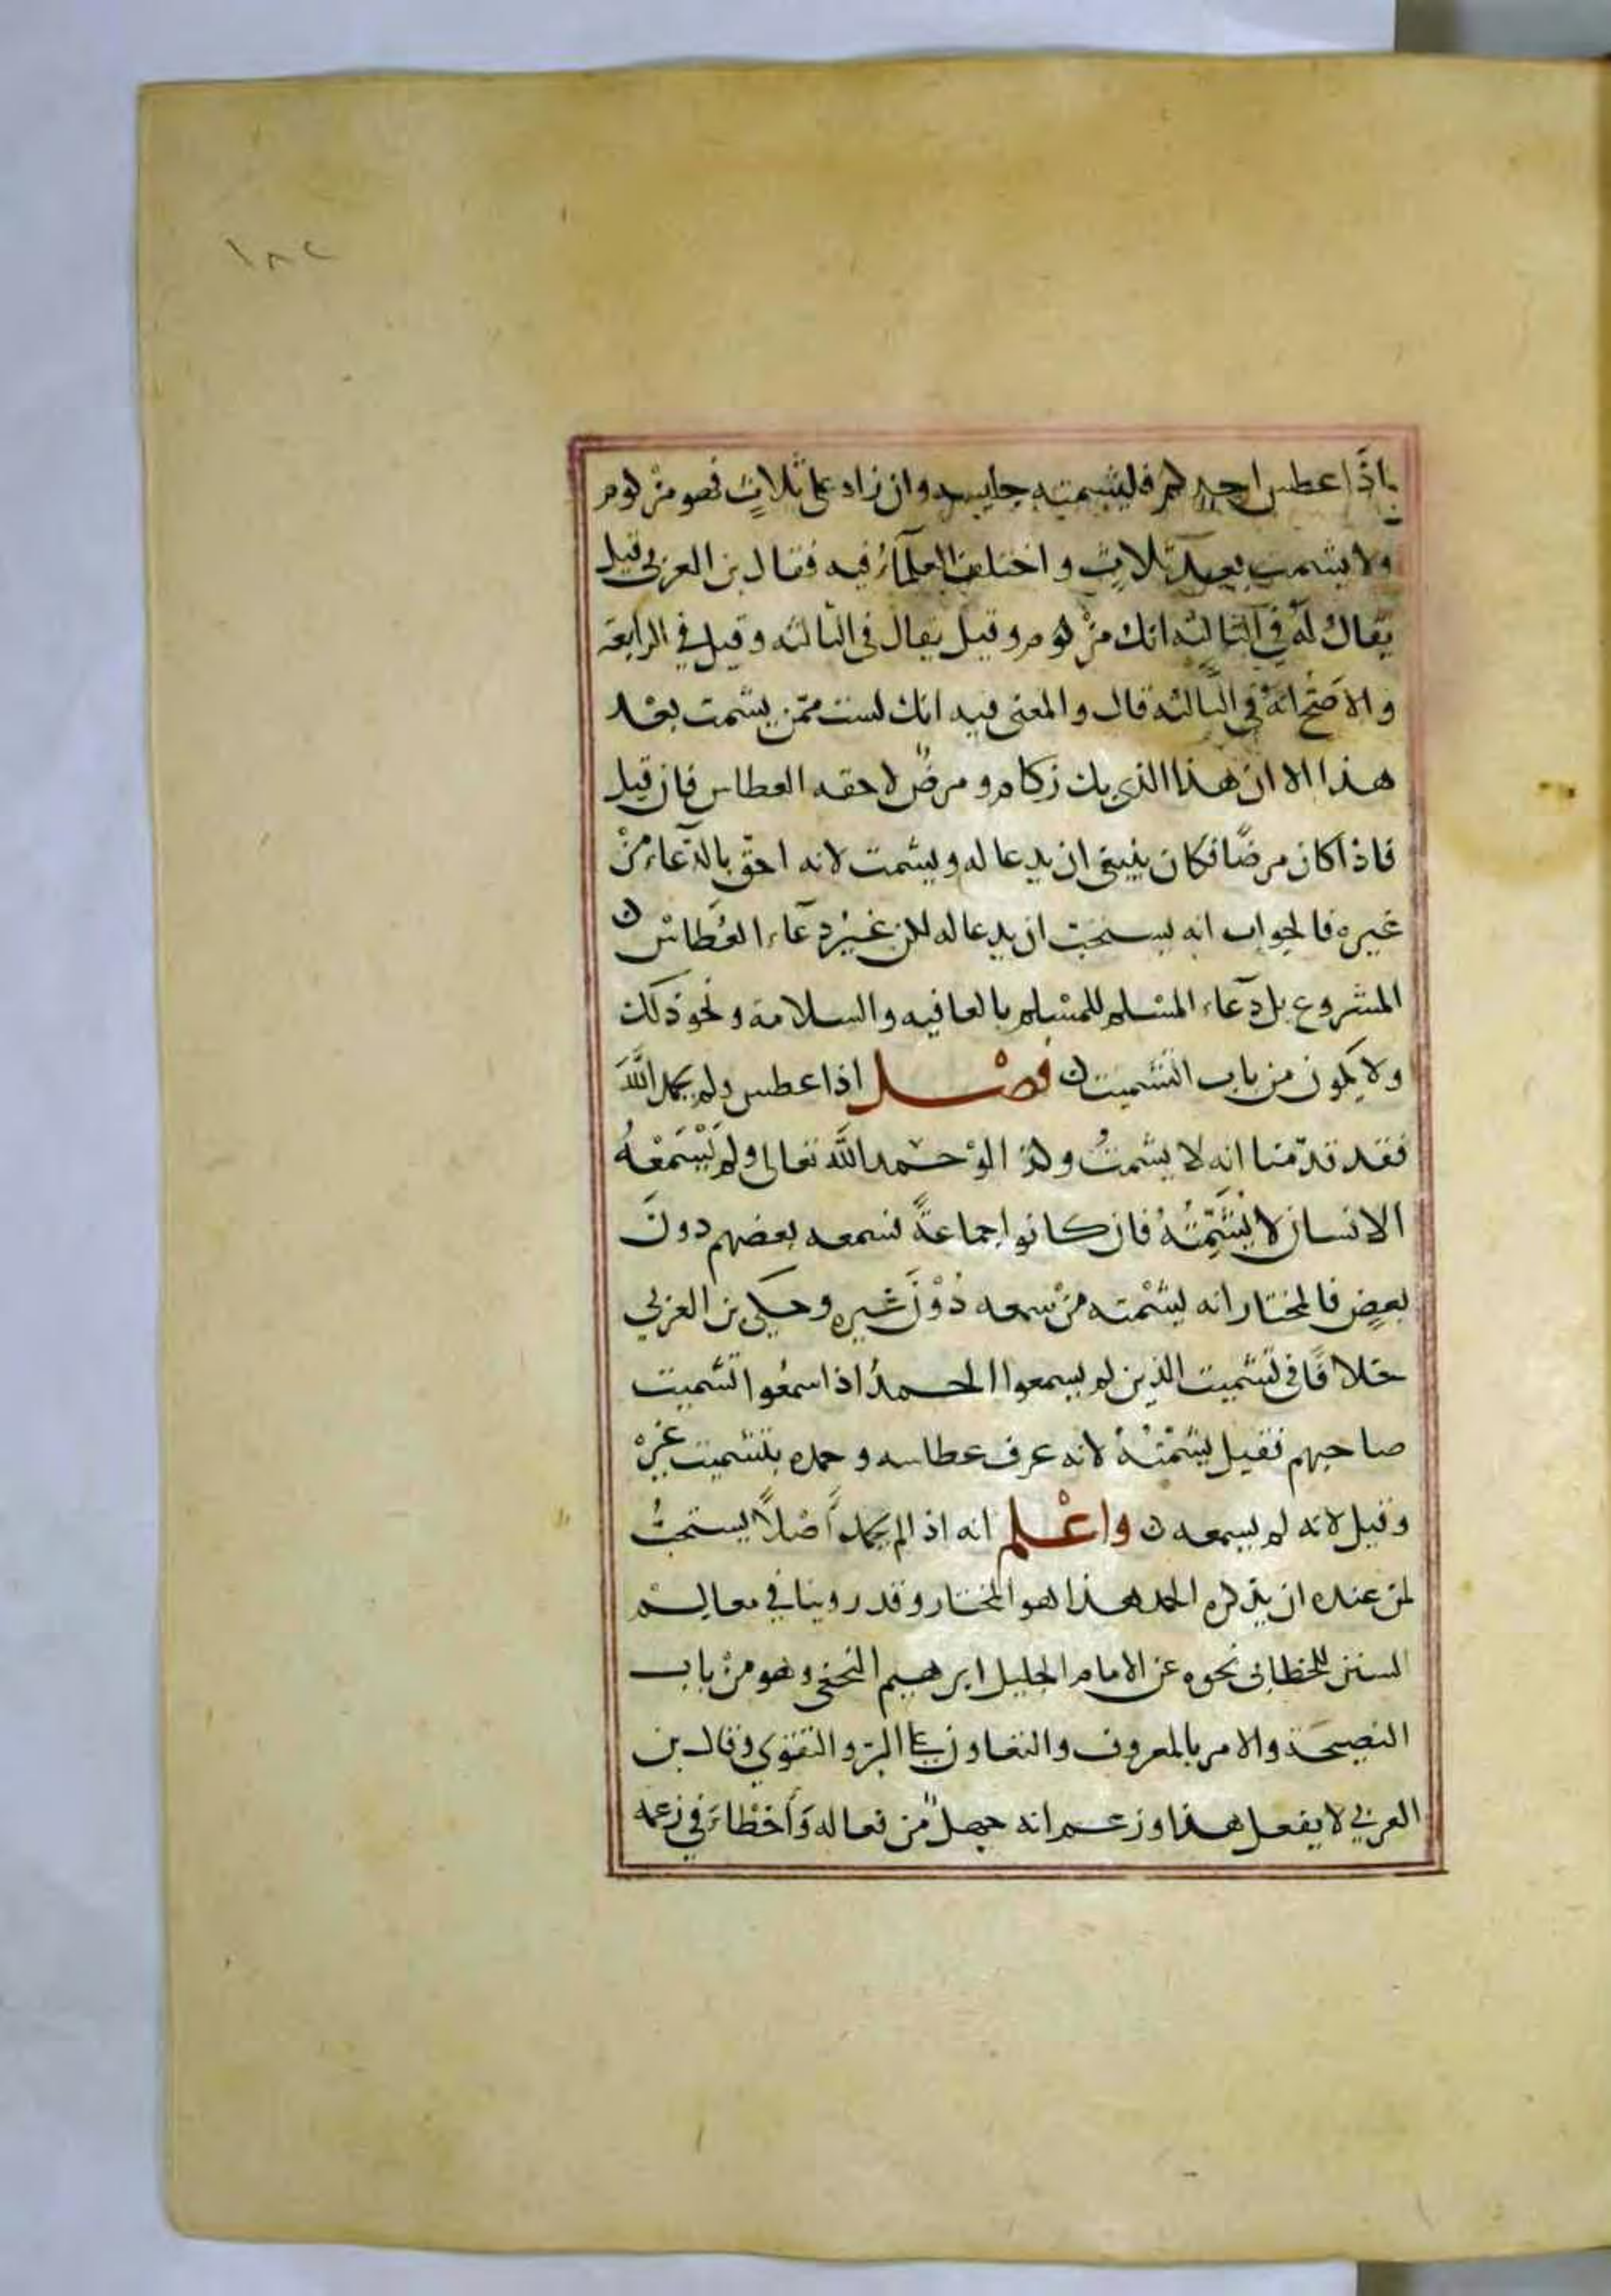 ١٨٢
اذا عطس احدكم فليشمته جليسه وان زاد على ثلاثٍ فهو مزكوم
ولا يشمت بعد ثلاثٍ واختلف العلمآءُ فيه فقال بن العربي قيل
يقالُ له في الثانيه انك مزْكوم وقيل يقال فى الثالثه وقيل في الرابعة
والاصَح انهُ في الثالثه قال والمعنى فيه انك لست ممّن يشمت بعْد
هذا الا ان هذا الذي بك زكام ومرضٌ لا حقه العطاس فان قيل
فاذا كان مرضًا فكان ينبغي ان يدعا له ويشمت لانه احقّ بالدّعاء منْ
غيره فالجواب انه يستحبّ ان يدعا له لكن غيْرُ دعآء العُطاسْ
المشروع بل دعآء المسْلم للمسْلم بالعافيه والسلامة ونحو ذلك
ولا يكون من باب التشميت ن فصْــل اذا عطس ولم يحمد اللَّهَ
فقد قدّمنا انه لا يشمتُ وكذا لوْ حمد اللَّه تعالى ولم يَسْمَعْهُ
الانسان لا يُشَمِّتُهُ فان كانوا جماعةً فسمعه بعضهم دونَ
بعضٍ فالمختار انه يشمْته منْ سمعه دُوْنَ غيره وحكى بن العربي
خلافًا فى تشميت الذين لم يسمعوا الحمدَ اذا سمعُوا تشميت
صاحبهم فقيل يشمْتهُ لانه عرف عطاسه وحمده بتشميت غيْرهْ
وقيل لا لانه لم يسمعه ن واعْلم انه اذا لم يحمد أصْلاً يستحبُّ
لمن عنده ان يذكره الحمد هذا هو المختار وقد روينا في معالم
السنن للخطابى نحوه عن الامام الجليل ابرهيم النخعي وهو منْ باب
النصيحَة والامر بالمعروف والتعاون على البرّ والتقوي وقال بن
العربي لا يفعل هذا وزعم انه جهلٌ من فعاله وَأخْطاءَ في زعمه